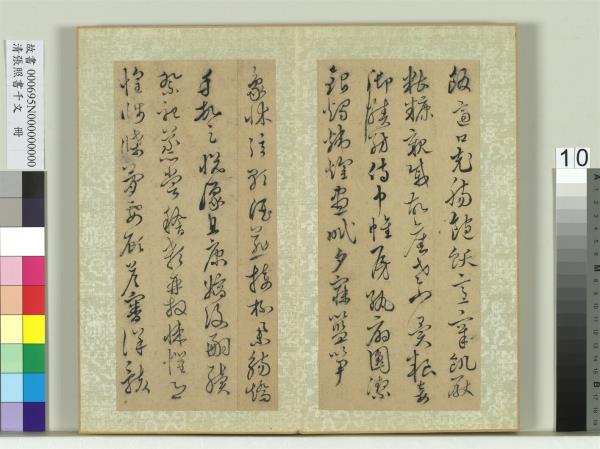 飯適口充腸飽飫烹宰飢厭
糟糠親戚故舊老少異糧妾
御績紡侍巾帷房紈扇圓潔
銀燭煒煌晝眠夕寐籃筍
象床弦歌酒讌接杯舉觴矯
手頓足悅豫且康嫡後嗣續
祭祀蒸嘗稽顙再拜悚懼恐
惶牋牒簡要顧答審詳骸
故書 000695N000000000
清張照書千文 冊
10
A
M
B